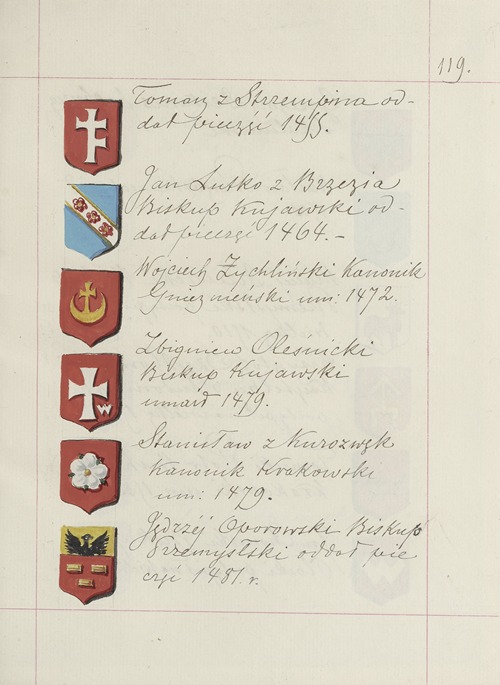 119.
Tomasz z Strzempina od-
dał pieczęć 1455.
Jan Lutko z Brzezia
Biskup Kujawski od-
dał pieczęć 1464.-
Wojciech Żychliński Kanonik
Gnieźnieński um: 1472.
Zbigniew Olesnicki
Biskup Kujawski
umarł 1479.
Stanisław z Kurozwęk
Kanonik Krakowski
um: 1479.
Jędrzej Oporowski Biskup
Przemyślski oddał pie
częć 1481. r.
W